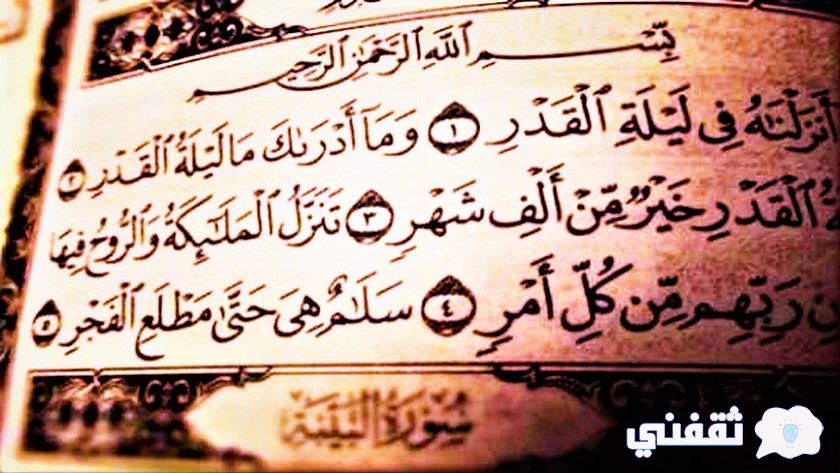 بِسْمِ ٱللَّهِ ٱلرَّحْمَٰنِ ٱلرَّحِيمِ
أَنزَلْنَٰهُ فِى لَيْلَةِ ٱلْقَدْرِ ١ وَمَآ أَدْرَىٰكَ مَا لَيْلَةُ ٱلْقَدْرِ ٢
ٱلْقَدْرِ خَيْرٌ مِّنْ أَلْفِ شَهْرٍ ٣ تَنَزَّلُ ٱلْمَلَٰٓئِكَةُ وَٱلرُّوحُ فِيهَا
رَبِّهِم مِّن كُلِّ أَمْرٍ ٤ سَلَٰمٌ هِىَ حَتَّىٰ مَطْلَعِ ٱلْفَجْرِ ٥
سُورَةُ البَيِّنَةِ
ثقفني